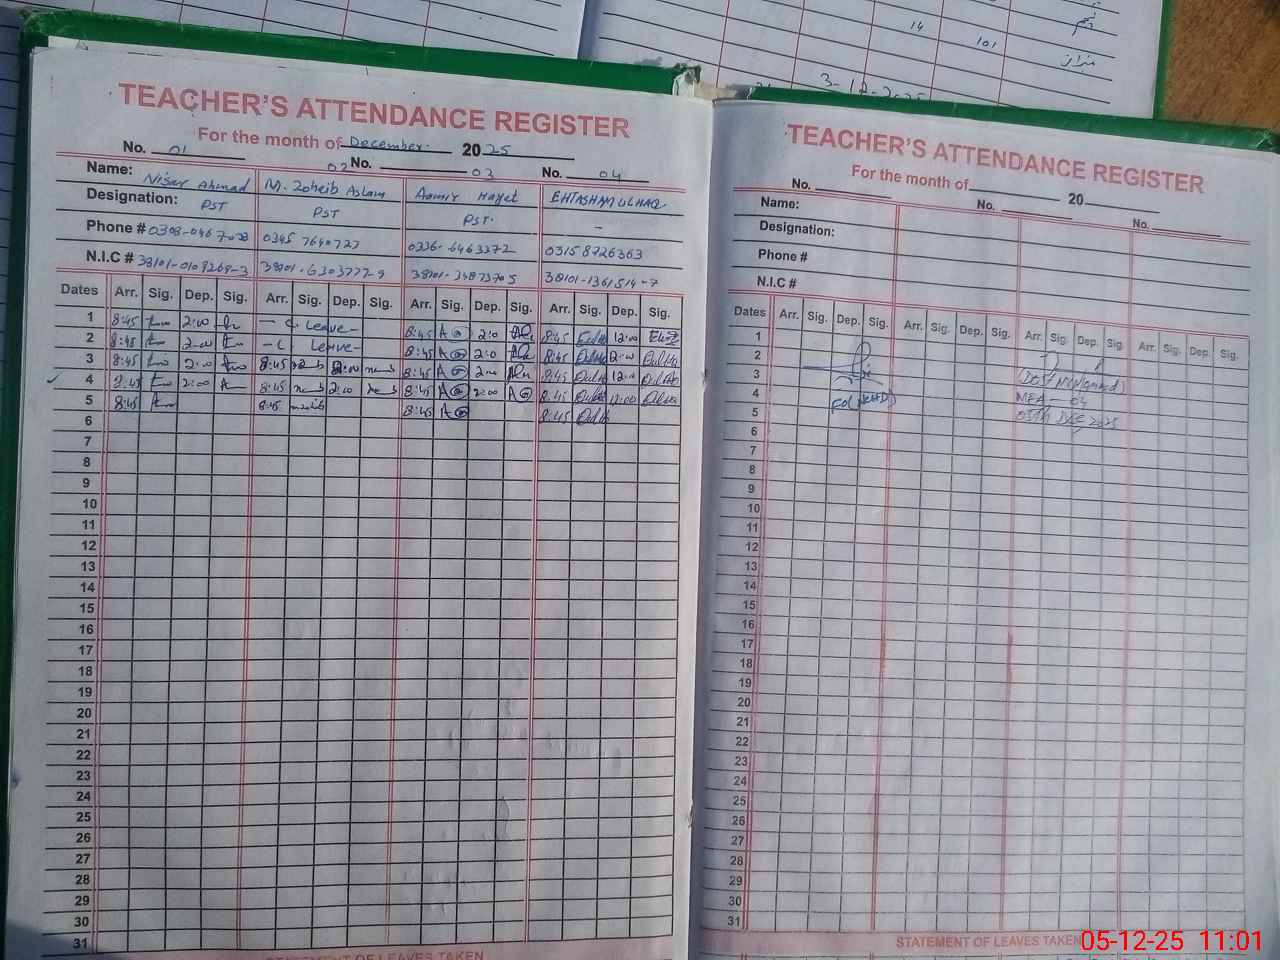 نعیم
14 101 میزان
3-12-2025
TEACHER'S ATTENDANCE REGISTER
For the month of December. 2025
No. 01 02 No. 03 No. 04
Name: Nisar Ahmad M. Zoheib Aslam Aamir Hayet EHTASHAM ULHAQ
Designation: PST PST PST. -
Phone # 0345 7640727 0336-6463372 03158726363
N.I.C # 38101-0109269-3 38101-6303777-9 38101-1361514-7
Dates Arr. Sig. Dep. Sig. Arr. Sig. Dep. Sig. Arr. Sig. Dep. Sig. Arr. Sig. Dep. Sig.
1 8:45 2:00 - C Leave - 8:45 2:0 8:45 12:00
2 8:45 2:00 - C Leave - 8:45 2:0 8:45 12:00
3 8:45 2:00 8:45 2:00 8:45 2:00 8:45 12:00
4 8:45 2:00 8:45 2:00 8:45 2:00 8:45 12:00
5 8:45 8:45 8:45 8:45
6
7
8
9
10
11
12
13
14
15
16
17
18
19
20
21
22
23
24
25
26
27
28
29
30
31
STATEMENT OF LEAVES TAKEN
TEACHER'S ATTENDANCE REGISTER
For the month of 20
No. No. No.
Name:
Designation:
Phone #
N.I.C #
Dates Arr. Sig. Dep. Sig. Arr. Sig. Dep. Sig. Arr. Sig. Dep. Sig. Arr. Sig. Dep. Sig.
1
2
3 (Dost Mohammad)
4 MEA - 04
5 05th DEC, 2025
6
7
8
9
10
11
12
13
14
15
16
17
18
19
20
21
22
23
24
25
26
27
28
29
30
31
STATEMENT OF LEAVES TAKEN
05-12-25 11:01